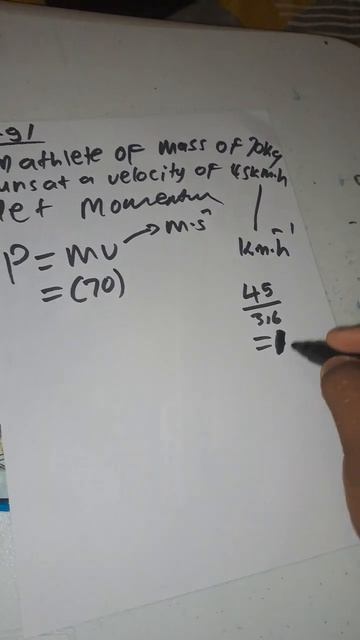 g1
athlete of mass of 70kg
uns at a velocity of 45km.h
et Momentum
P = mv → m.s⁻¹
km.h⁻¹
= (70)
45
3,6
= 1